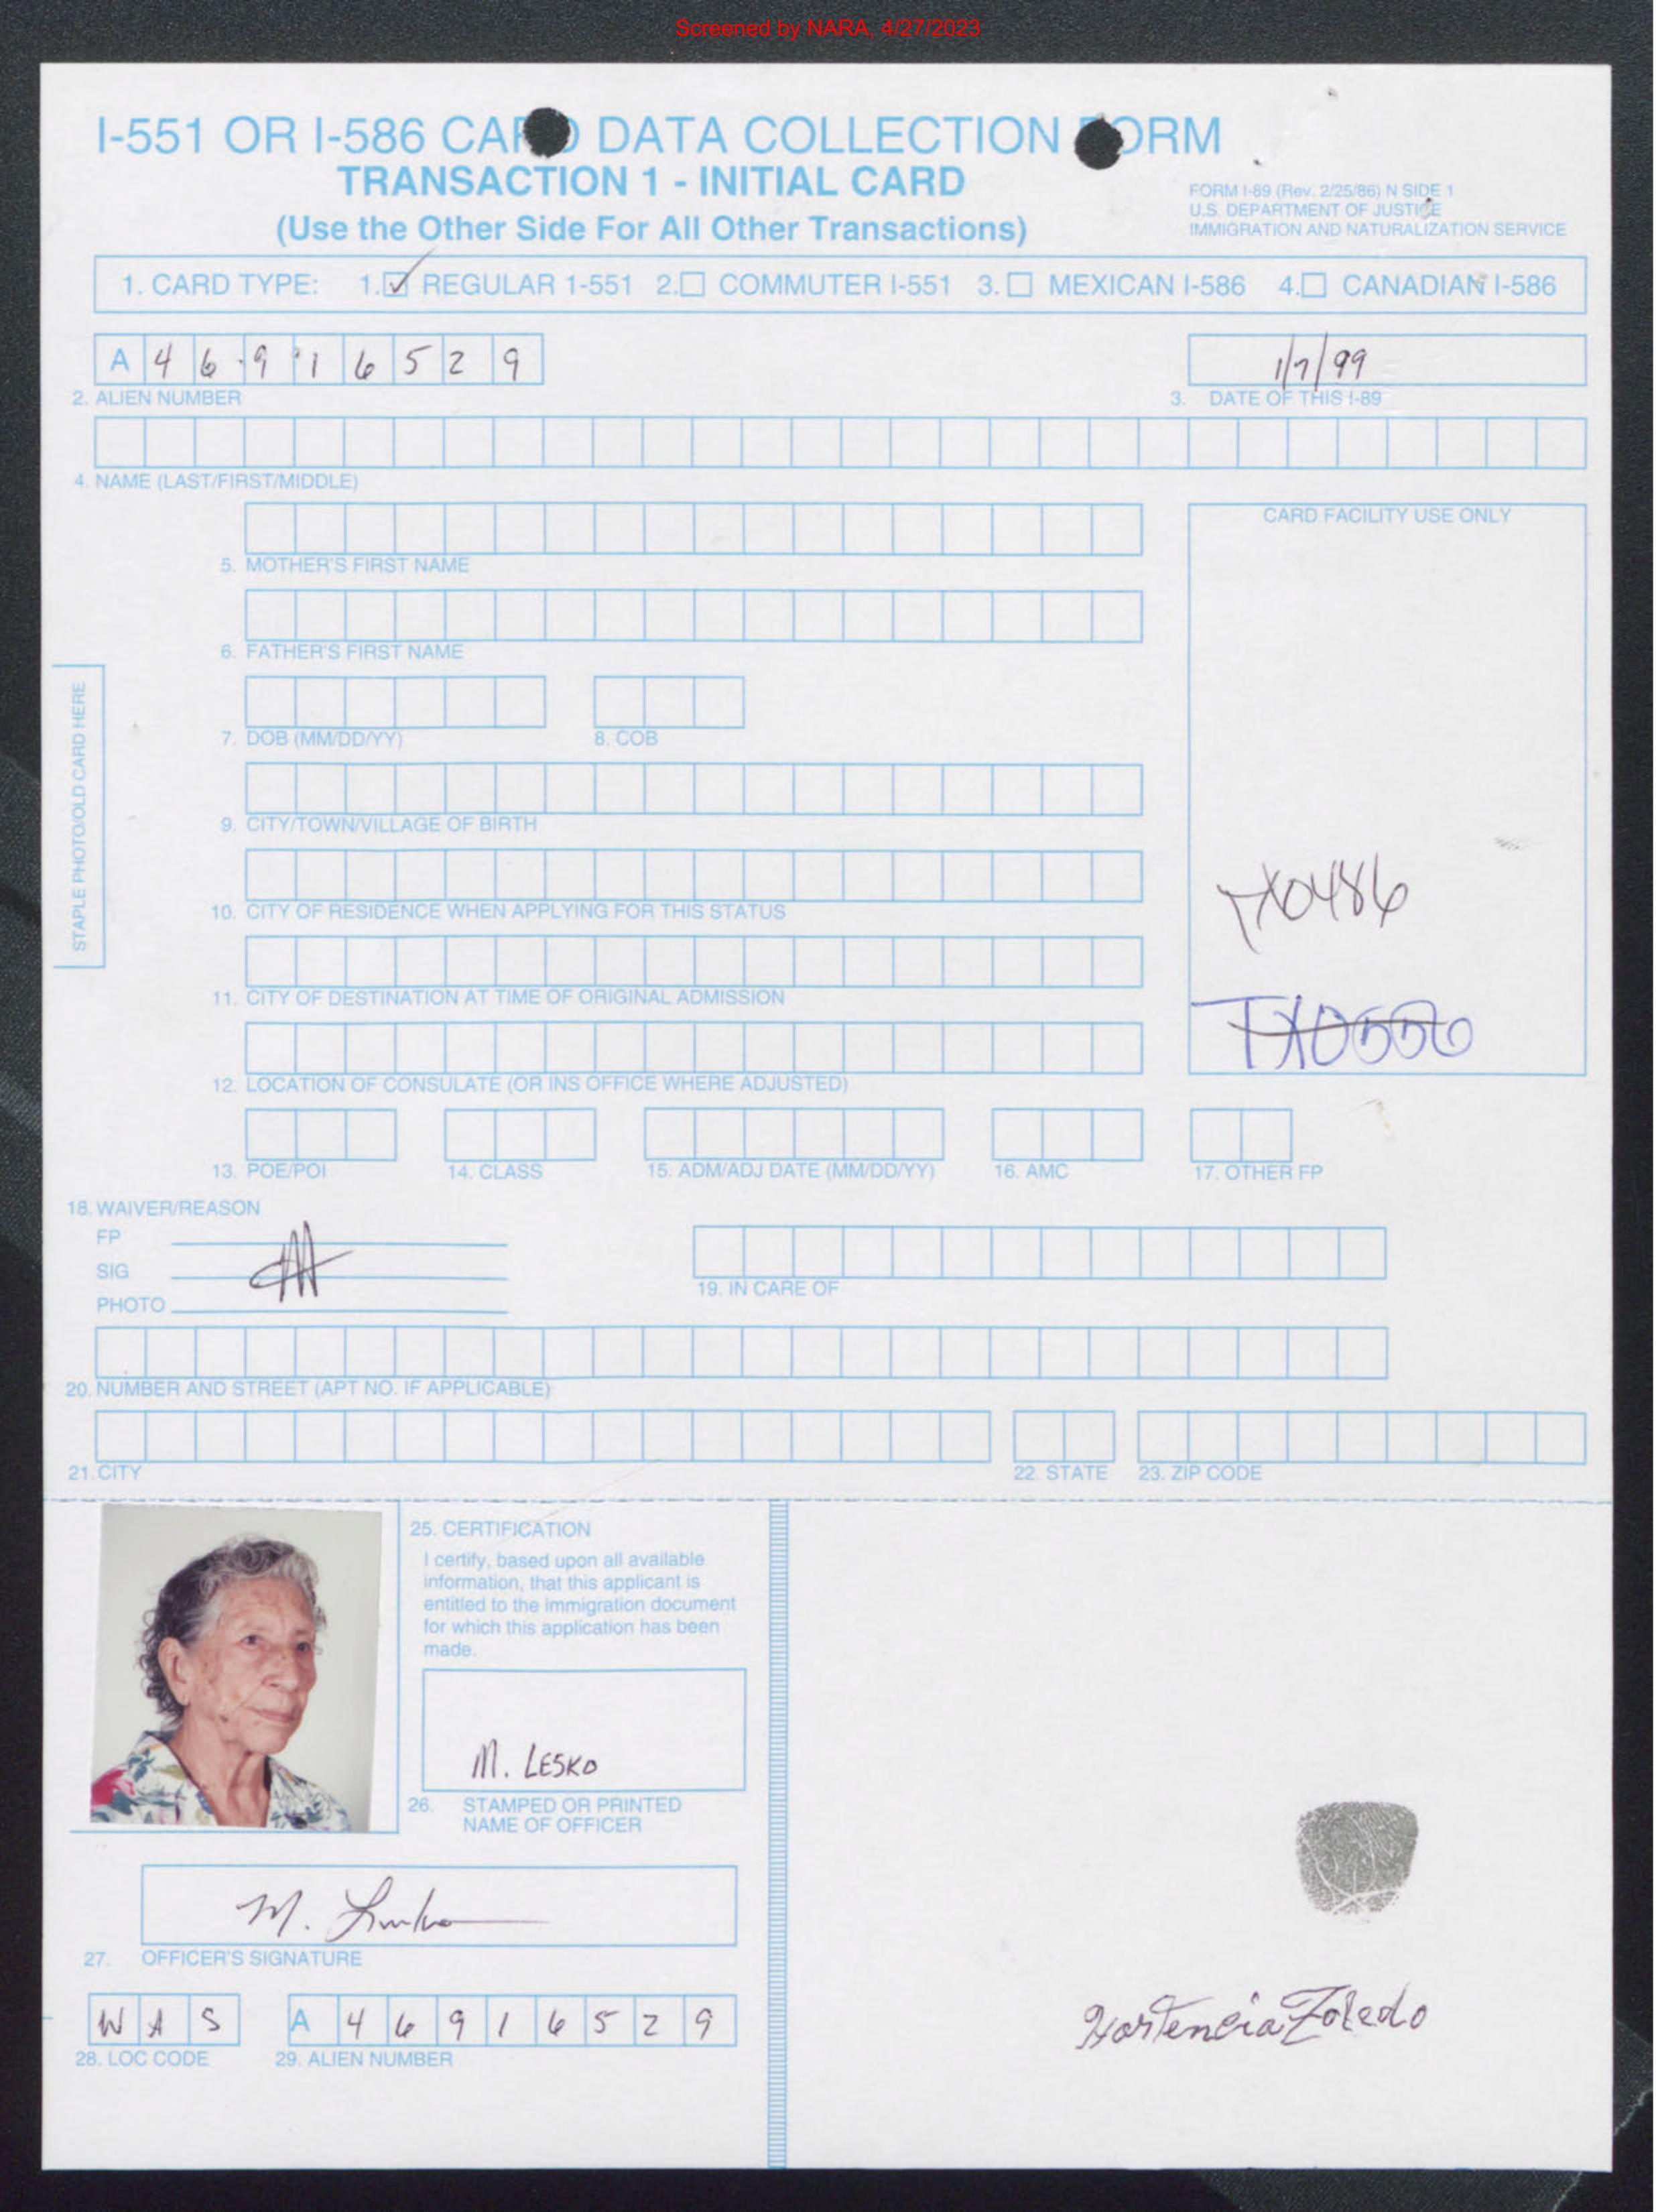 Screened by NARA, 4/27/2023
I-551 OR I-586 CARD DATA COLLECTION FORM
TRANSACTION 1 - INITIAL CARD
(Use the Other Side For All Other Transactions)
FORM I-89 (Rev. 2/25/86) N SIDE 1
U.S. DEPARTMENT OF JUSTICE
IMMIGRATION AND NATURALIZATION SERVICE
1. CARD TYPE: 1. ☑ REGULAR 1-551 2. ☐ COMMUTER I-551 3. ☐ MEXICAN I-586 4. ☐ CANADIAN I-586
A 4 6 9 1 6 5 2 9
1/7/99
2. ALIEN NUMBER
3. DATE OF THIS I-89
4. NAME (LAST/FIRST/MIDDLE)
CARD FACILITY USE ONLY
5. MOTHER'S FIRST NAME
6. FATHER'S FIRST NAME
STAPLE PHOTO/OLD CARD HERE
7. DOB (MM/DD/YY) 8. COB
9. CITY/TOWN/VILLAGE OF BIRTH
TX0486
10. CITY OF RESIDENCE WHEN APPLYING FOR THIS STATUS
11. CITY OF DESTINATION AT TIME OF ORIGINAL ADMISSION
TX0550
12. LOCATION OF CONSULATE (OR INS OFFICE WHERE ADJUSTED)
13. POE/POI 14. CLASS 15. ADM/ADJ DATE (MM/DD/YY) 16. AMC 17. OTHER FP
18. WAIVER/REASON
FP
SIG
PHOTO
19. IN CARE OF
20. NUMBER AND STREET (APT NO. IF APPLICABLE)
21. CITY 22. STATE 23. ZIP CODE
25. CERTIFICATION
I certify, based upon all available
information, that this applicant is
entitled to the immigration document
for which this application has been
made.
M. LESKO
26. STAMPED OR PRINTED
NAME OF OFFICER
M. Lesko
27. OFFICER'S SIGNATURE
W A S A 4 6 9 1 6 5 2 9
28. LOC CODE 29. ALIEN NUMBER
Hortencia Toledo